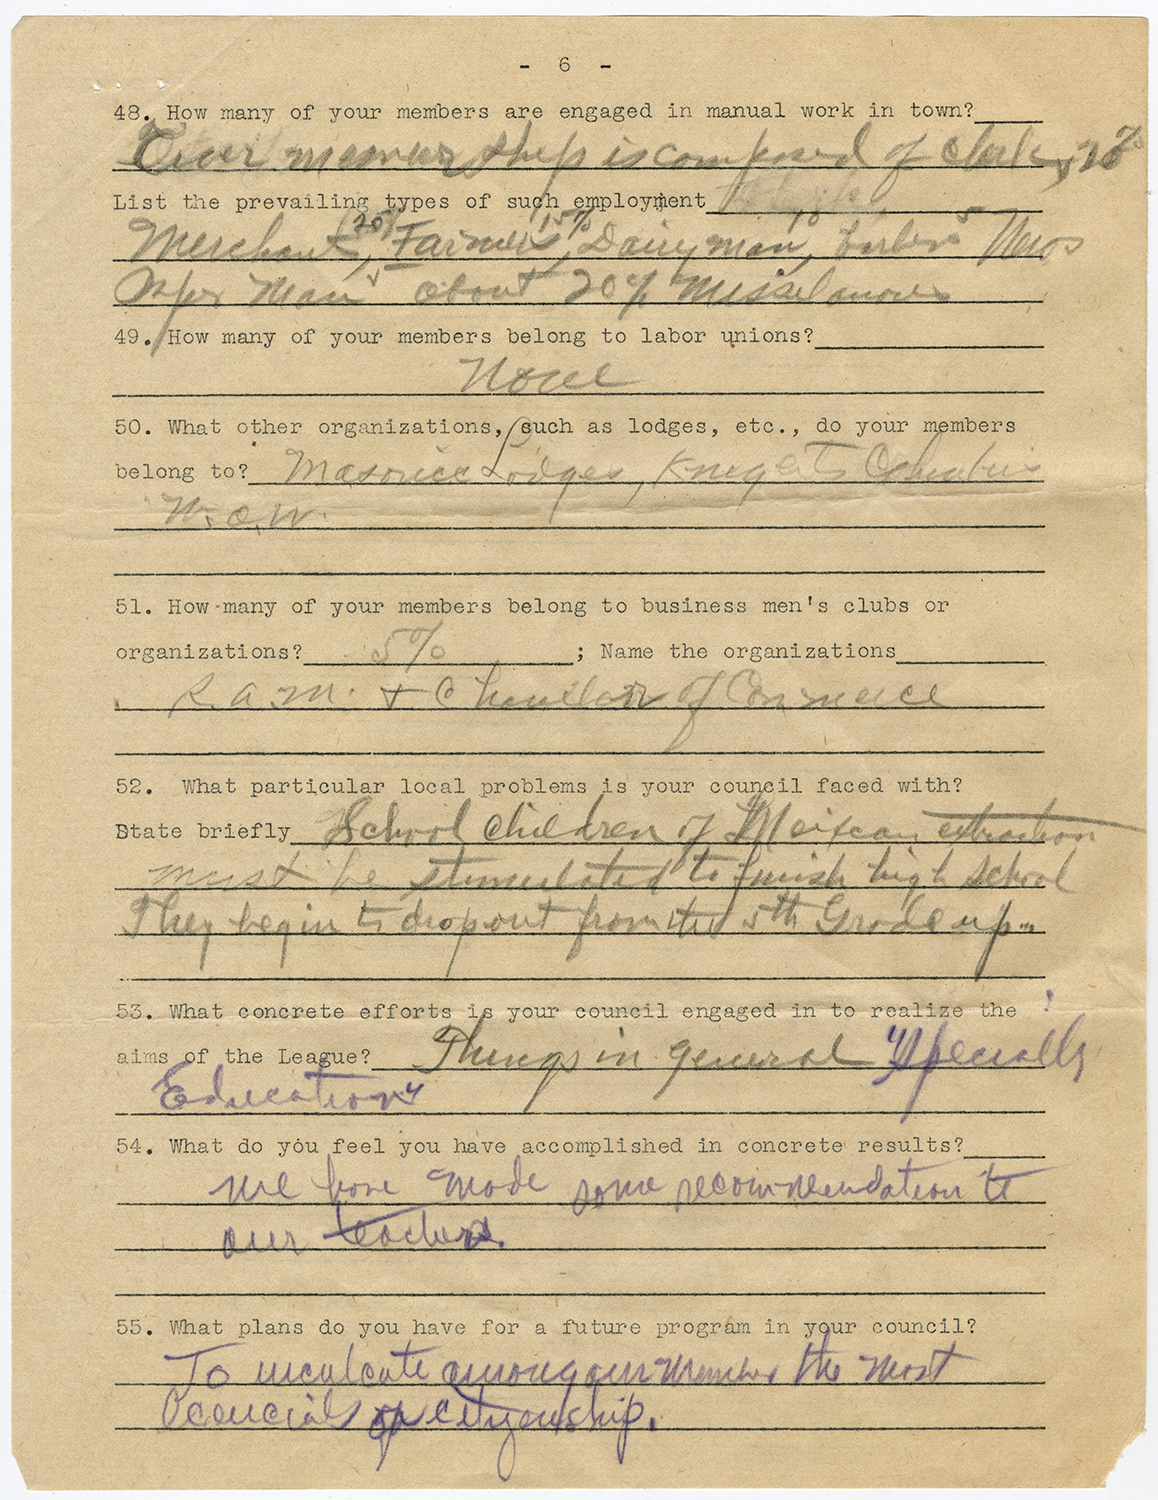 - 6 -
48. How many of your members are engaged in manual work in town?
Our membership is composed of clerks, 20%
List the prevailing types of such employment
Merchants (20%), Farmers 15%, Dairyman, 10 barbers 5 News
Paper Man about 20% Misselanous
49. How many of your members belong to labor unions?
None
50. What other organizations, such as lodges, etc., do your members
belong to? Masonice Lodges, Knights Columbus
W.O.W.
51. How many of your members belong to business men's clubs or
organizations? 5% ; Name the organizations
R.A.M. + Chamber of Commerce
52. What particular local problems is your council faced with?
State briefly School children of Meixcan extraction
must be stimulated to finish high school
They begin to drop out from the 5th Grade up.
53. What concrete efforts is your council engaged in to realize the
aims of the League? Things in general "Specially
Education"
54. What do you feel you have accomplished in concrete results?
We have made some recommendation to
our teachers.
55. What plans do you have for a future program in your council?
To inculcate among our members the most
of citizenship.